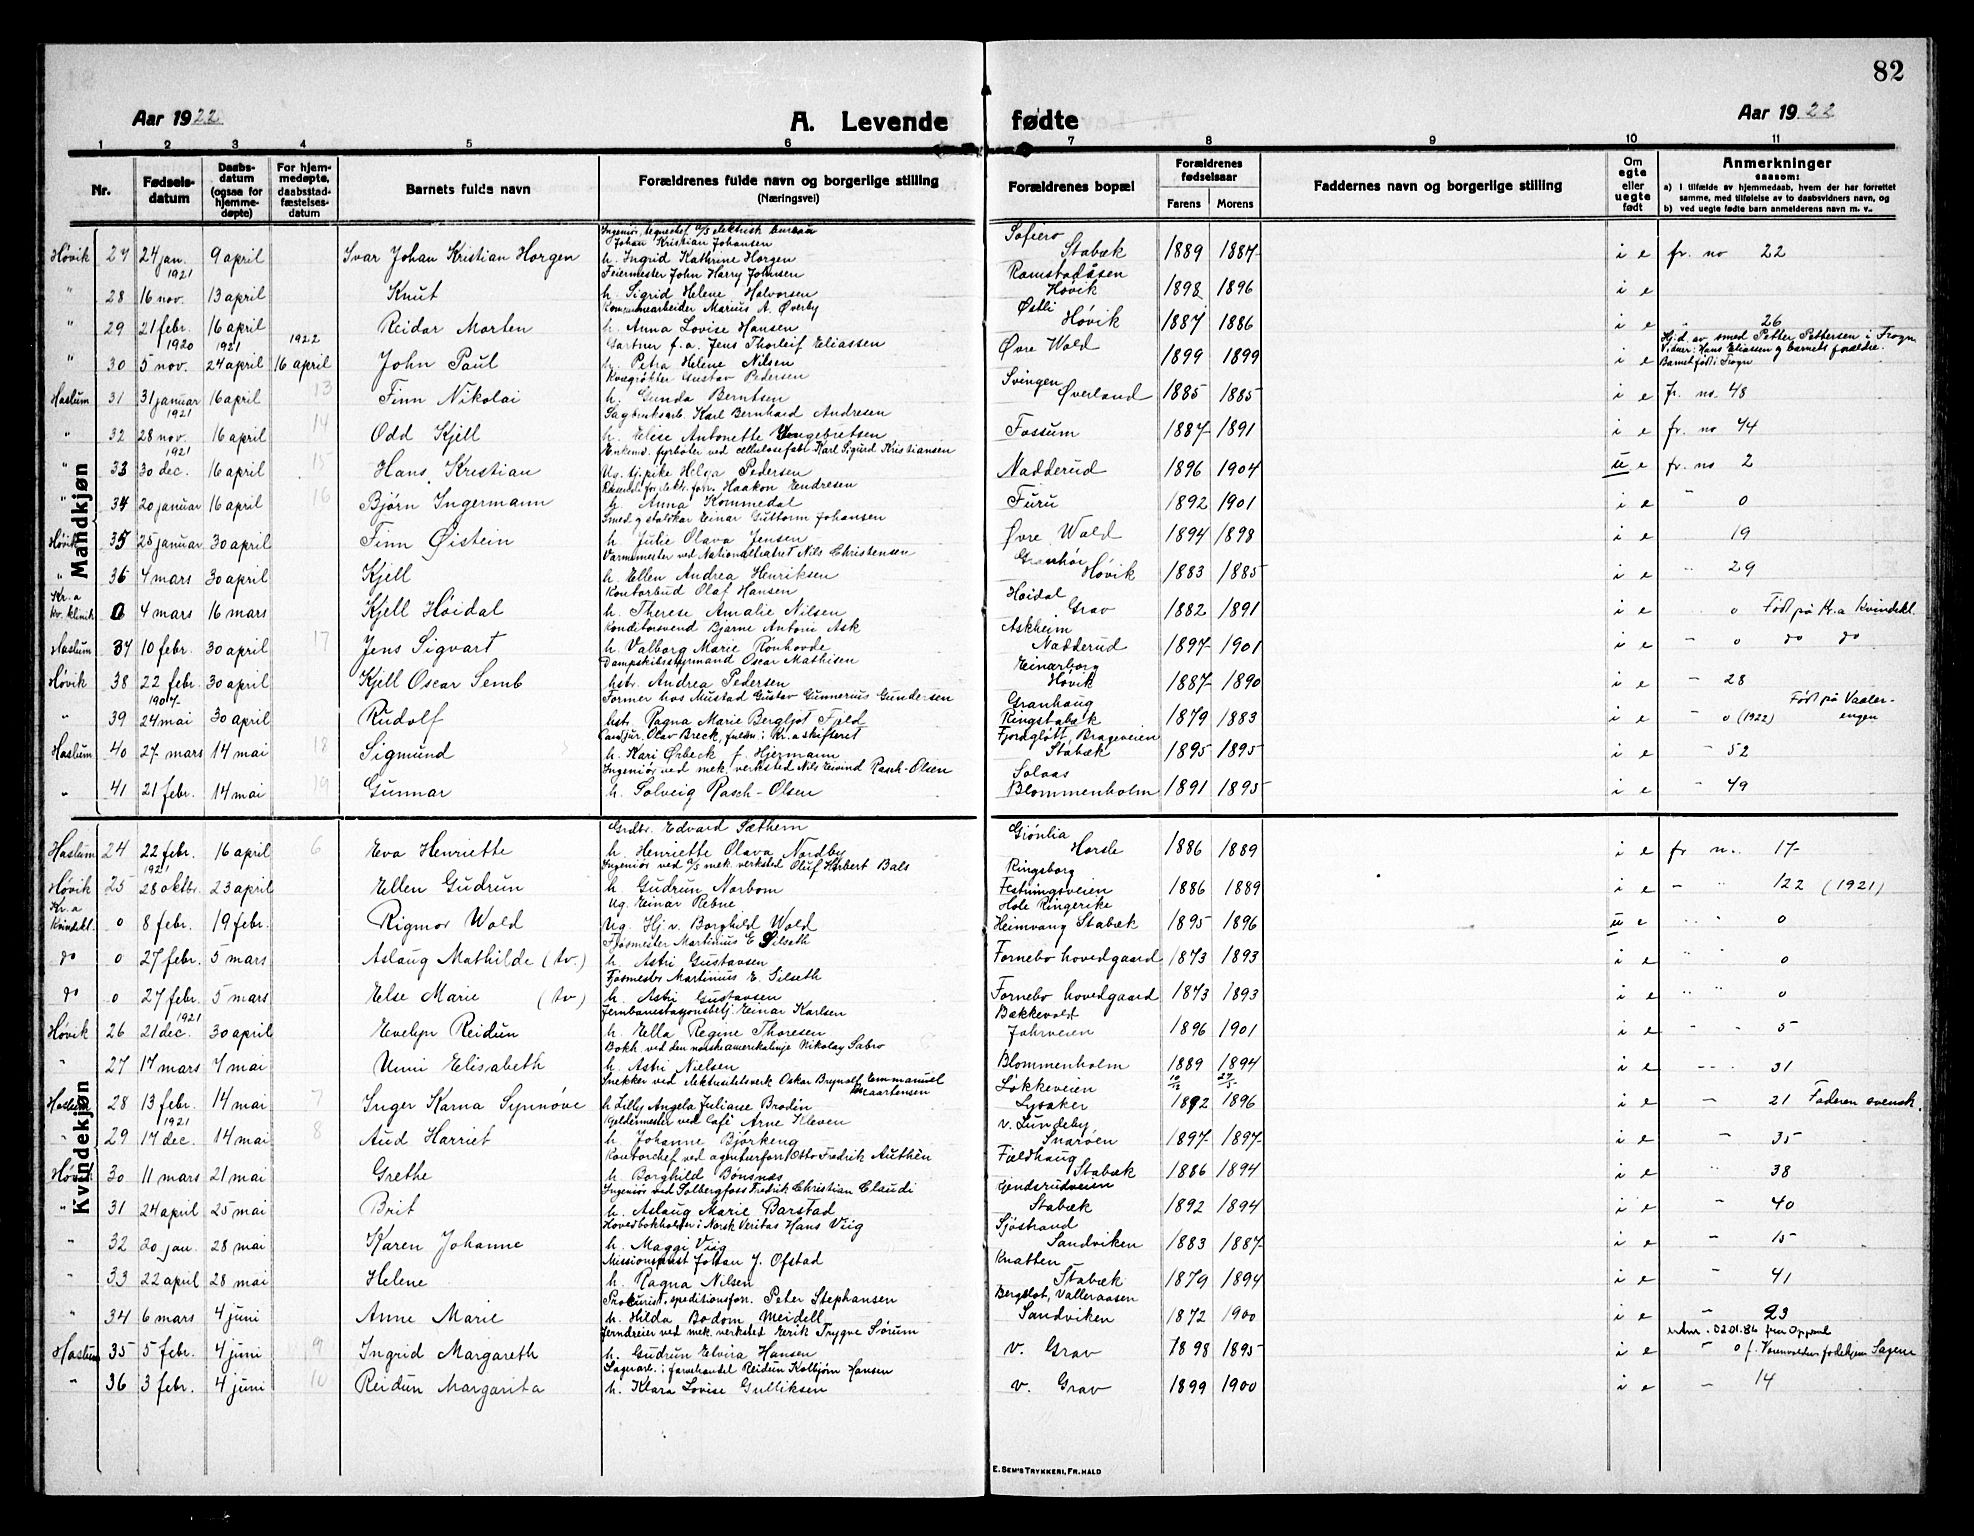 82
Aar 1922 A. Levende fødte Aar 1922
1 2 3 4 5 6 7 8 9 10 11
Nr. Fødselsdatum Daabsdatum (ogsaa for hjemmedøpte) For hjemmedøpte, daabsstadfæstelsesdatum Barnets fulde navn Forældrenes fulde navn og borgerlige stilling (Næringsvei) Forældrenes bopæl Forældrenes fødselsaar Farens Morens Faddernes navn og borgerlige stilling Om egte eller uegte født Anmerkninger saasom: a) I tilfælde av hjemmedaab, hvem der har forrettet samme, med tilføielse av to daabsvidners navn, og b) ved uegte fødte barn anmelderens navn m. v.
Mandkjøn
Ingeniør, tegnechef a/s elektrisk bureau Sofiero
Johan Kristian Johansen
Høvik 27 24 jan. 9 april Svar Johan Kristian Horgen h. Ingrid Kathrine Horgen Stabæk 1889 1887 i e fr. no 22
1921 Feiermester John Harry Johnsen Ramstadåsen
" 28 16 nov. 13 april Knut h. Sigrid Helene Halvorsen Høvik 1898 1896 i e
Kommunearbeider Marius A. Øverby Østli
" 29 21 febr. 16 april Reidar Morten h. Anna Lovise Hansen Høvik 1887 1886 i e " 26
1920 1921 1922 Gartner f.a. Jens Thorleif Eliassen Øvre Wold Hj.d. av smed Petter Pettersen i Frogn
" 30 5 nov. 24 april 16 april John Paul h. Petra Helene Nilsen 1899 1899 i e Vidner: Hans Eliassen og barnets forældre. Barnet født i Frogn
Kvægrøkter Gustav Pedersen Svingen
Haslum 31 31 januar 16 april 13 Finn Nikolai h. Gunda Berntsen Øverland 1885 1885 i e fr. no. 48
1921 Sagbruksarb. Karl Bernhard Andresen
" 32 28 nov. 16 april 14 Odd Kjell h. Elise Antonette Yngebretsen Fossum 1887 1891 i e fr. no 44
1921 Enkem. fyrbøter ved cellulosefabr. Karl Sigurd Kristiansen
" 33 30 dec. 16 april 15 Hans Kristian Ug. tj.pike Helga Pedersen Nadderud 1896 1904 u e fr. no 2
Haakon Endresen
" 34 20 januar 16 april 16 Bjørn Ingermann h. Anna Kommedal Furu 1892 1901 i e " 0
Smed g stalskar Einar Guttorm Johansen
Høvik 35 25 januar 30 april Finn Øistein h. Julie Olava Jensen Øvre Wold 1894 1898 i e 19
Varmemester ved Nationalteatret Nils Christensen Granhøi
" 36 4 mars 30 april Kjell h. Ellen Andrea Henriksen Høvik 1883 1885 i e " 29
Kr.a Kontorbud Olaf Hansen Høidal
kv. klinik 0 4 mars 16 mars Kjell Høidal h. Therese Amalie Nilsen Grav 1882 1891 i e " 0 Født på Kr.a Kvindekl.
Konditorsvend Bjarne Antoni Ask Askheim
Haslum 37 10 febr. 30 april 17 Jens Sigvart h. Valborg Marie Rønhovde Nadderud 1897 1901 i e " 0 do do
Dampskibsstyrmand Oscar Mathisen Einarborg
Høvik 38 22 febr. 30 april Kjell Oscar Semb hstr. Andrea Pedersen Høvik 1887 1890 i e " 28
1907 Former hos Mustad Gustav Gunnerius Gundersen Granhaug Født på Vaalerengen
" 39 24 mai 30 april Rudolf hstr. Ragna Marie Bergljot Fjeld Ringstabæk 1879 1883 i e " 0 (1922)
Cand. jur. Olav Breck, fuldm. i Kr.a skifteret Fjordgløtt, Brageveien
Haslum 40 27 mars 14 mai 18 Sigmund h. Kari Ørbeck f. Hjermann Stabæk 1895 1895 i e " 52
Ingeniør ved mek. verksted Nils Eivind Rasch-Olsen Solaas
" 41 21 febr. 14 mai 19 Gunnar h. Solveig Rasch-Olsen Blommenholm 1891 1895 i e " 49
Kvindekjøn
Grdbr. Edvard Sæthern Grønlia
Haslum 24 22 febr. 16 april 6 Eva Henriette h. Henriette Olava Nordby Horsle 1886 1889 i e fr n. 17
1921 Ingeniør ved a/s mek. verksted Oluf Herbert Bals Ringsborg
Høvik 25 28 oktbr. 23 april Ellen Gudrun h. Gudrun Norbom Festningsveien 1886 1889 i e " " 122 (1921)
Kr.a Ug. Einar Rebne Hole Ringerike
Kvindekl. 0 8 febr. 19 febr. Rigmor Wold Ug. Hj.v. Borghild Wold Heimvang Stabæk 1895 1896 u e " " 0
Fjøsmester Martinius E. Silseth
do 0 27 febr. 5 mars Aslaug Mathilde (tv.) h. Astri Gustavsen Fornebo hovedgaard 1873 1893 i e " " 0
Fjøsmester Martinius E. Silseth
do 0 27 febr. 5 mars Else Marie (tv.) h. Astri Gustavsen Fornebo hovedgaard 1873 1893 i e " " 0
1921 Jernbanestasjonsbetj. Einar Karlsen Bakkevold
Høvik 26 21 dec. 30 april Evelyn Reidun h. Ella Regine Thoresen Jahrveien 1896 1901 i e " " 5
Bokh. ved den norskeamerikalinje Nikolay Sabro
" 27 17 mars 7 mai Unni Elisabeth h. Astri Nielsen Blommenholm 1889 1894 i e " " 31
Snekker ved elektrisitetsverk Oskar Brynolf Emmanuel Maartensen Løkkeveien
Haslum 28 13 febr. 14 mai 7 Inger Karna Synnøve h. Lilly Angela Juliane Brodin Lysaker 1892 1896 i e " 21 Faderen svensk.
1921 Kjeldermester ved Café Arne Kleven v. Lundeby
" 29 17 dec. 14 mai 8 Aud Harriet h. Johanne Bjørkeng Snarøen 1897 1897 i e " 35
Kontorchef ved agenturforr. Otto Fredrik Authén Fjeldhaug
Høvik 30 11 mars 21 mai Grethe h. Borghild Bønsnes Stabæk 1886 1894 i e " 38
Ingeniør ved Solbergfoss Fredrik Christian Claudi Gjendsrudveien
" 31 24 april 25 mai Brit h. Aslaug Marie Barstad Stabæk 1892 1894 i e " 40
Hovedbokholder i Norsk Veritas Hans Viig Sjøstrand
" 32 20 jan. 28 mai Karen Johanne h. Maggi Viig Sandviken 1883 1887 i e " 15
Missionsprest Johan J. Ofstad Knatten
" 33 22 april 28 mai Helene h. Ragna Nilsen Stabæk 1879 1894 i e " 41
Prokurist, speditionsforr. Peter Stephansen Bergslot, Valleraasen
" 34 6 mars 4 juni Anne Marie h. Hilda Bodom Meidell Sandviken 1872 1900 i e " 23
Jerndreier ved mek. verksted Erik Trygve Sørum
Haslum 35 5 febr. 4 juni 9 Ingrid Margareth h. Gudrun Elvira Hansen v. Grav 1898 1895 i e " 0
Lagerarb. i farvehandel Reidun Kolbjørn Hansen
" 36 3 febr. 4 juni 10 Reidun Margarita h. Klara Lovise Gulliksen v. Grav 1899 1900 i e " 14
E. SEM'S TRYKKERI, FR.HALD